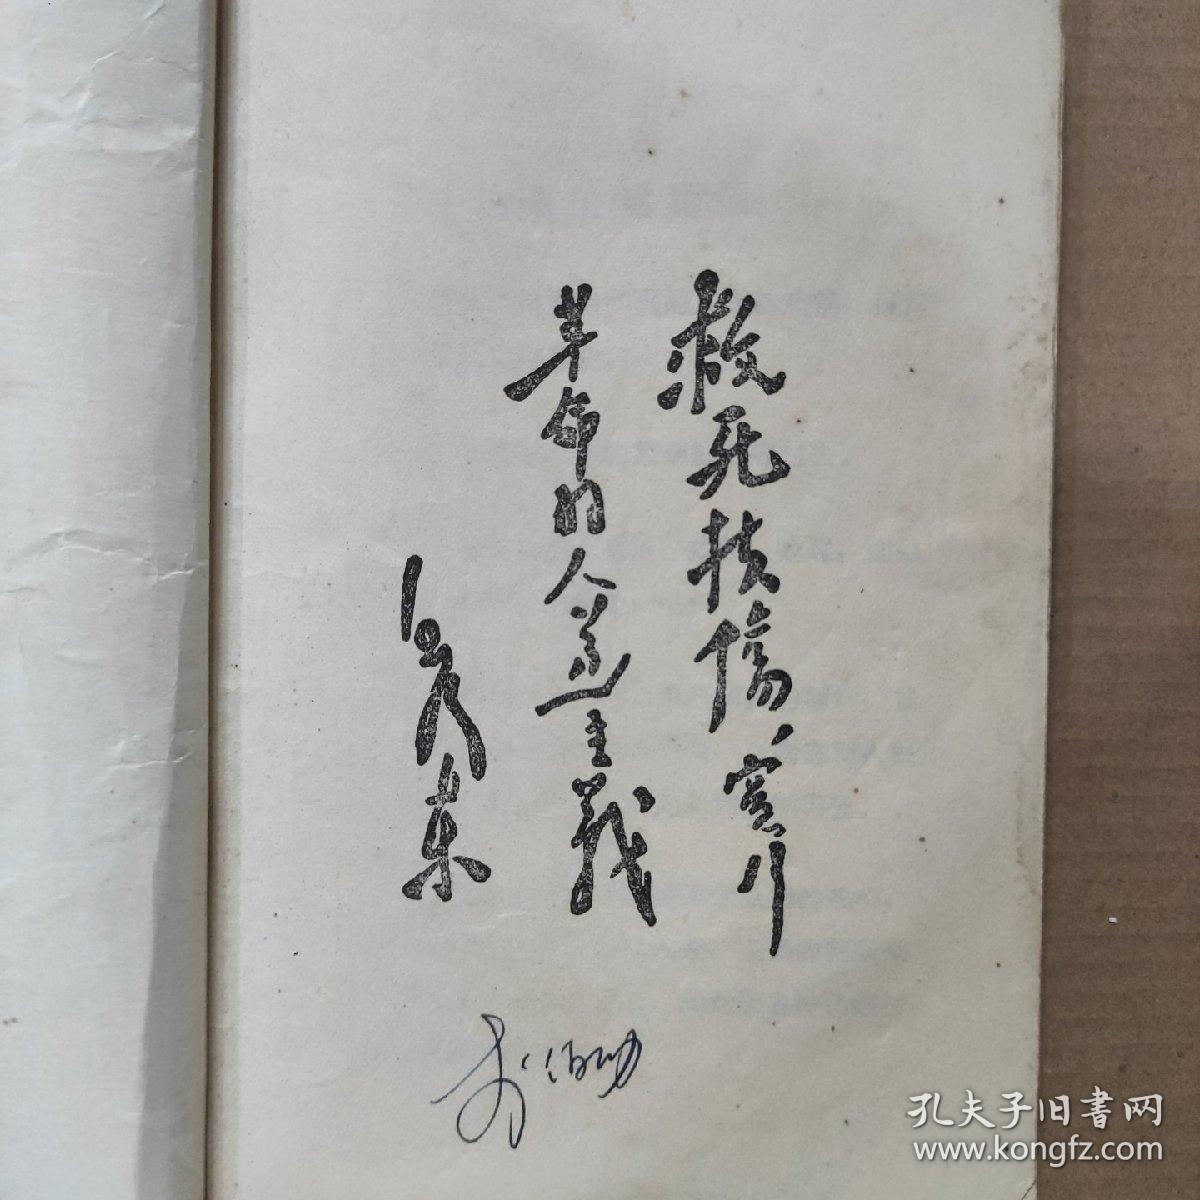 救死扶傷、实行
革命的人道主義
毛泽东
李伯勋
孔夫子旧書网
www.kongfz.com